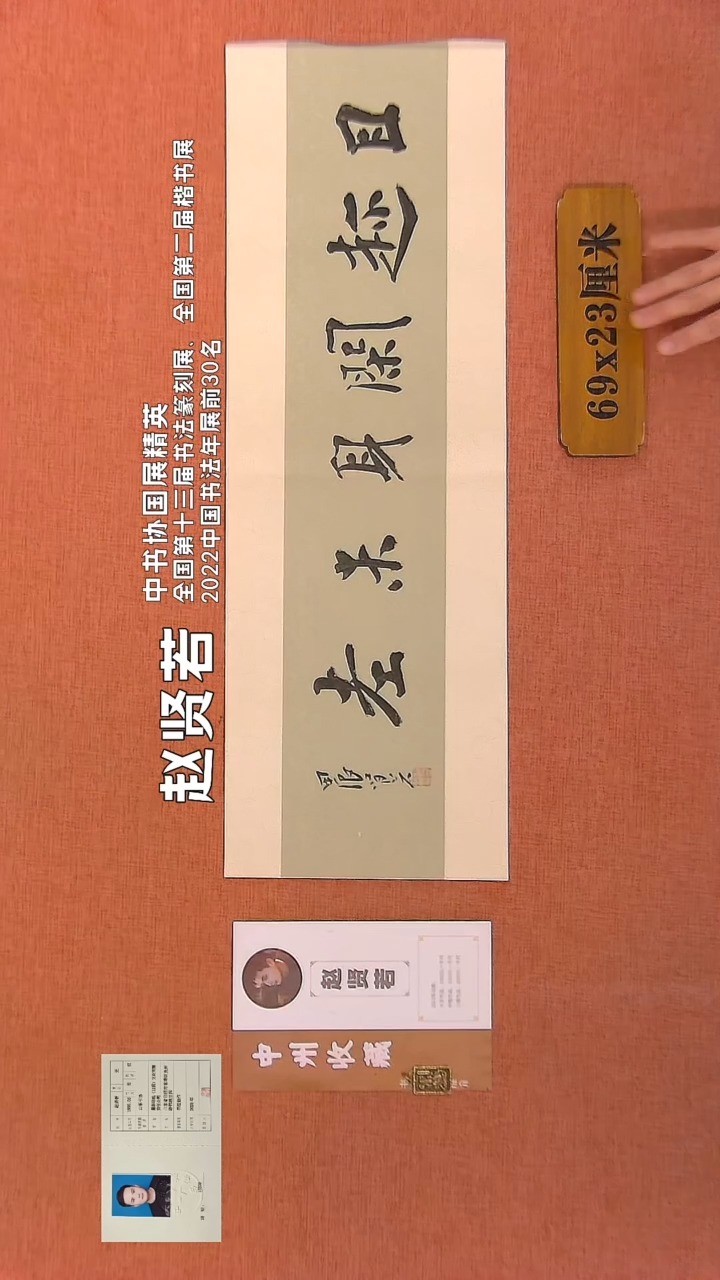 赵贤若
中书协国展精英
全国第十三届书法篆刻展、全国第二届楷书展
2022中国书法年展前30名
且趂閑身未老
69x23厘米
赵贤若
中州收藏